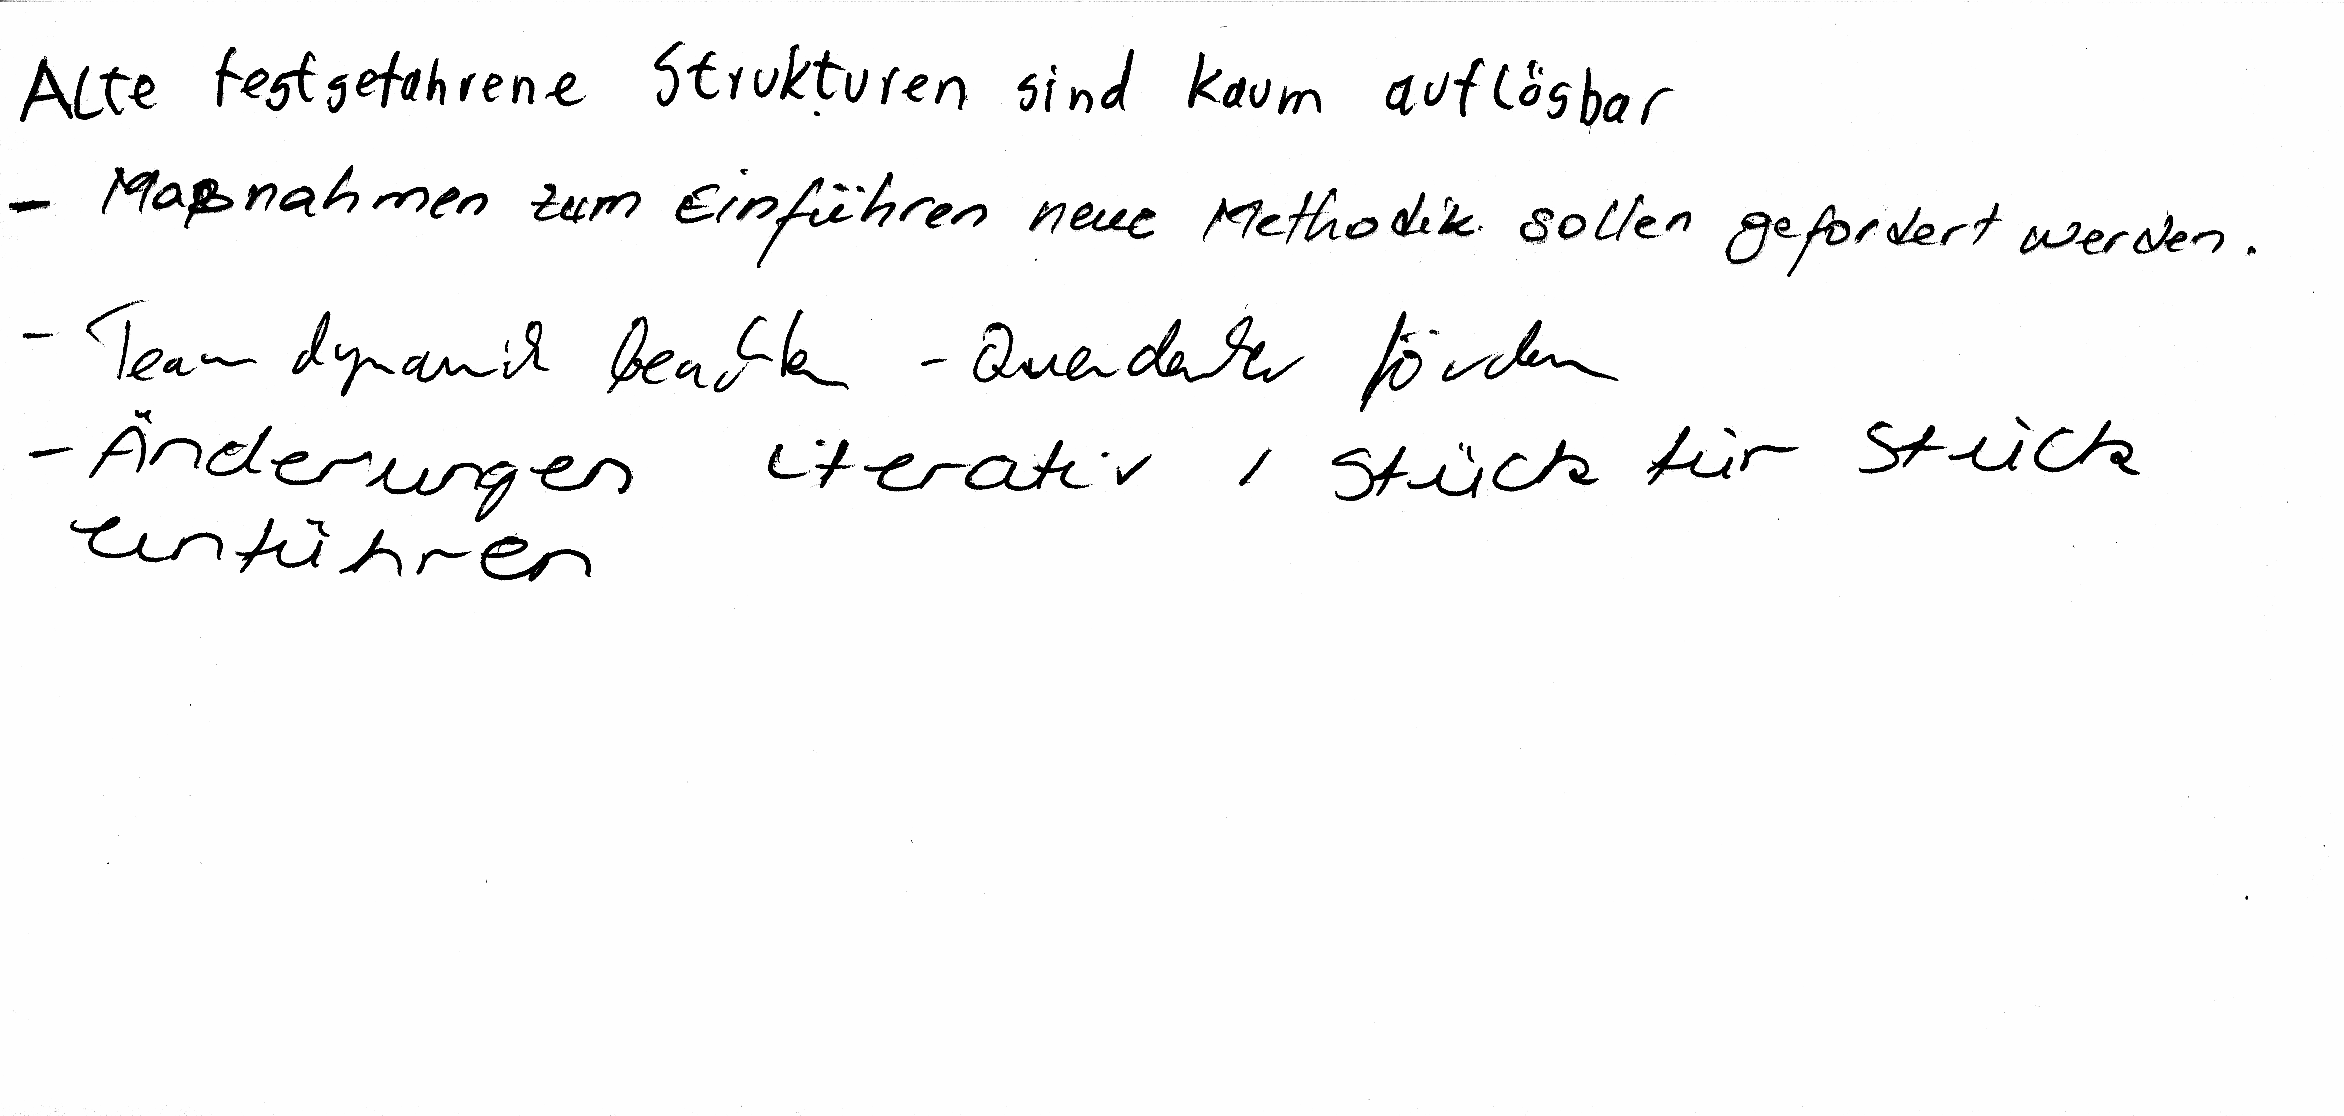 Alte festgefahrene Strukturen sind kaum auflösbar
- Maßnahmen zum Einführen neue Methodik sollen gefordert werden.
- Team dynamik beachten - Querdenker fördern
- Änderungen iterativ / Stück für Stück
einführen